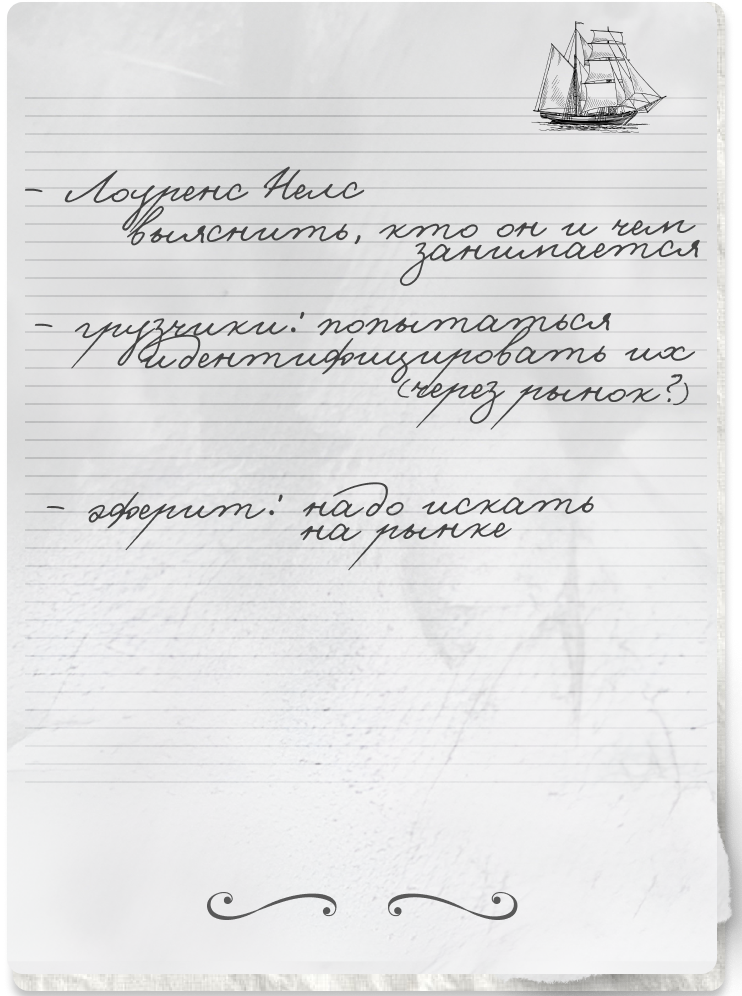 - Лоуренс Нелс
выяснить, кто он и чем
занимается
- грузчики: попытаться
идентифицировать их
(через рынок?)
- эферит: надо искать
на рынке